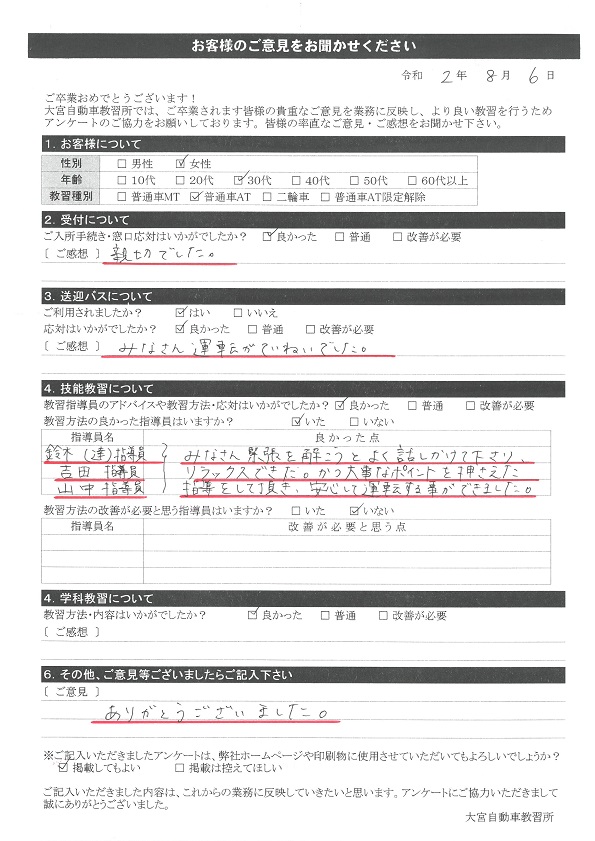 お客様のご意見をお聞かせください
令和 2年 8月 6日
ご卒業おめでとうございます！
大宮自動車教習所では、ご卒業されます皆様の貴重なご意見を業務に反映し、より良い教習を行うため
アンケートのご協力をお願いしております。皆様の率直なご意見・ご感想をお聞かせ下さい。
1. お客様について
性別 □ 男性 ☑ 女性
年齢 □ 10代 □ 20代 ☑ 30代 □ 40代 □ 50代 □ 60代以上
教習種別 □ 普通車MT ☑ 普通車AT □ 二輪車 □ 普通車AT限定解除
2. 受付について
ご入所手続き・窓口応対はいかがでしたか？ ☑ 良かった □ 普通 □ 改善が必要
〔 ご感想 〕 親切でした。
3. 送迎バスについて
ご利用されましたか？ ☑ はい □ いいえ
応対はいかがでしたか？ ☑ 良かった □ 普通 □ 改善が必要
〔 ご感想 〕 みなさん運転がていねいでした。
4. 技能教習について
教習指導員のアドバイスや教習方法・応対はいかがでしたか？ ☑ 良かった □ 普通 □ 改善が必要
教習方法の良かった指導員はいますか？ ☑ いた □ いない
指導員名 良かった点
鈴木（達）指導員 みなさん緊張を解こうとよく話しかけて下さり、
吉田 指導員 リラックスできた。かつ大事なポイントを押さえた
山中 指導員 指導をして頂き、安心して運転する事ができました。
教習方法の改善が必要と思う指導員はいますか？ □ いた ☑ いない
指導員名 改善が必要と思う点
4. 学科教習について
教習方法・内容はいかがでしたか？ ☑ 良かった □ 普通 □ 改善が必要
〔 ご感想 〕
6. その他、ご意見等ございましたらご記入下さい
〔 ご意見 〕
ありがとうございました。
※ご記入いただきましたアンケートは、弊社ホームページや印刷物に使用させていただいてもよろしいでしょうか？
☑ 掲載してもよい □ 掲載は控えてほしい
ご記入いただきました内容は、これからの業務に反映していきたいと思います。アンケートにご協力いただきまして
誠にありがとうございました。
大宮自動車教習所